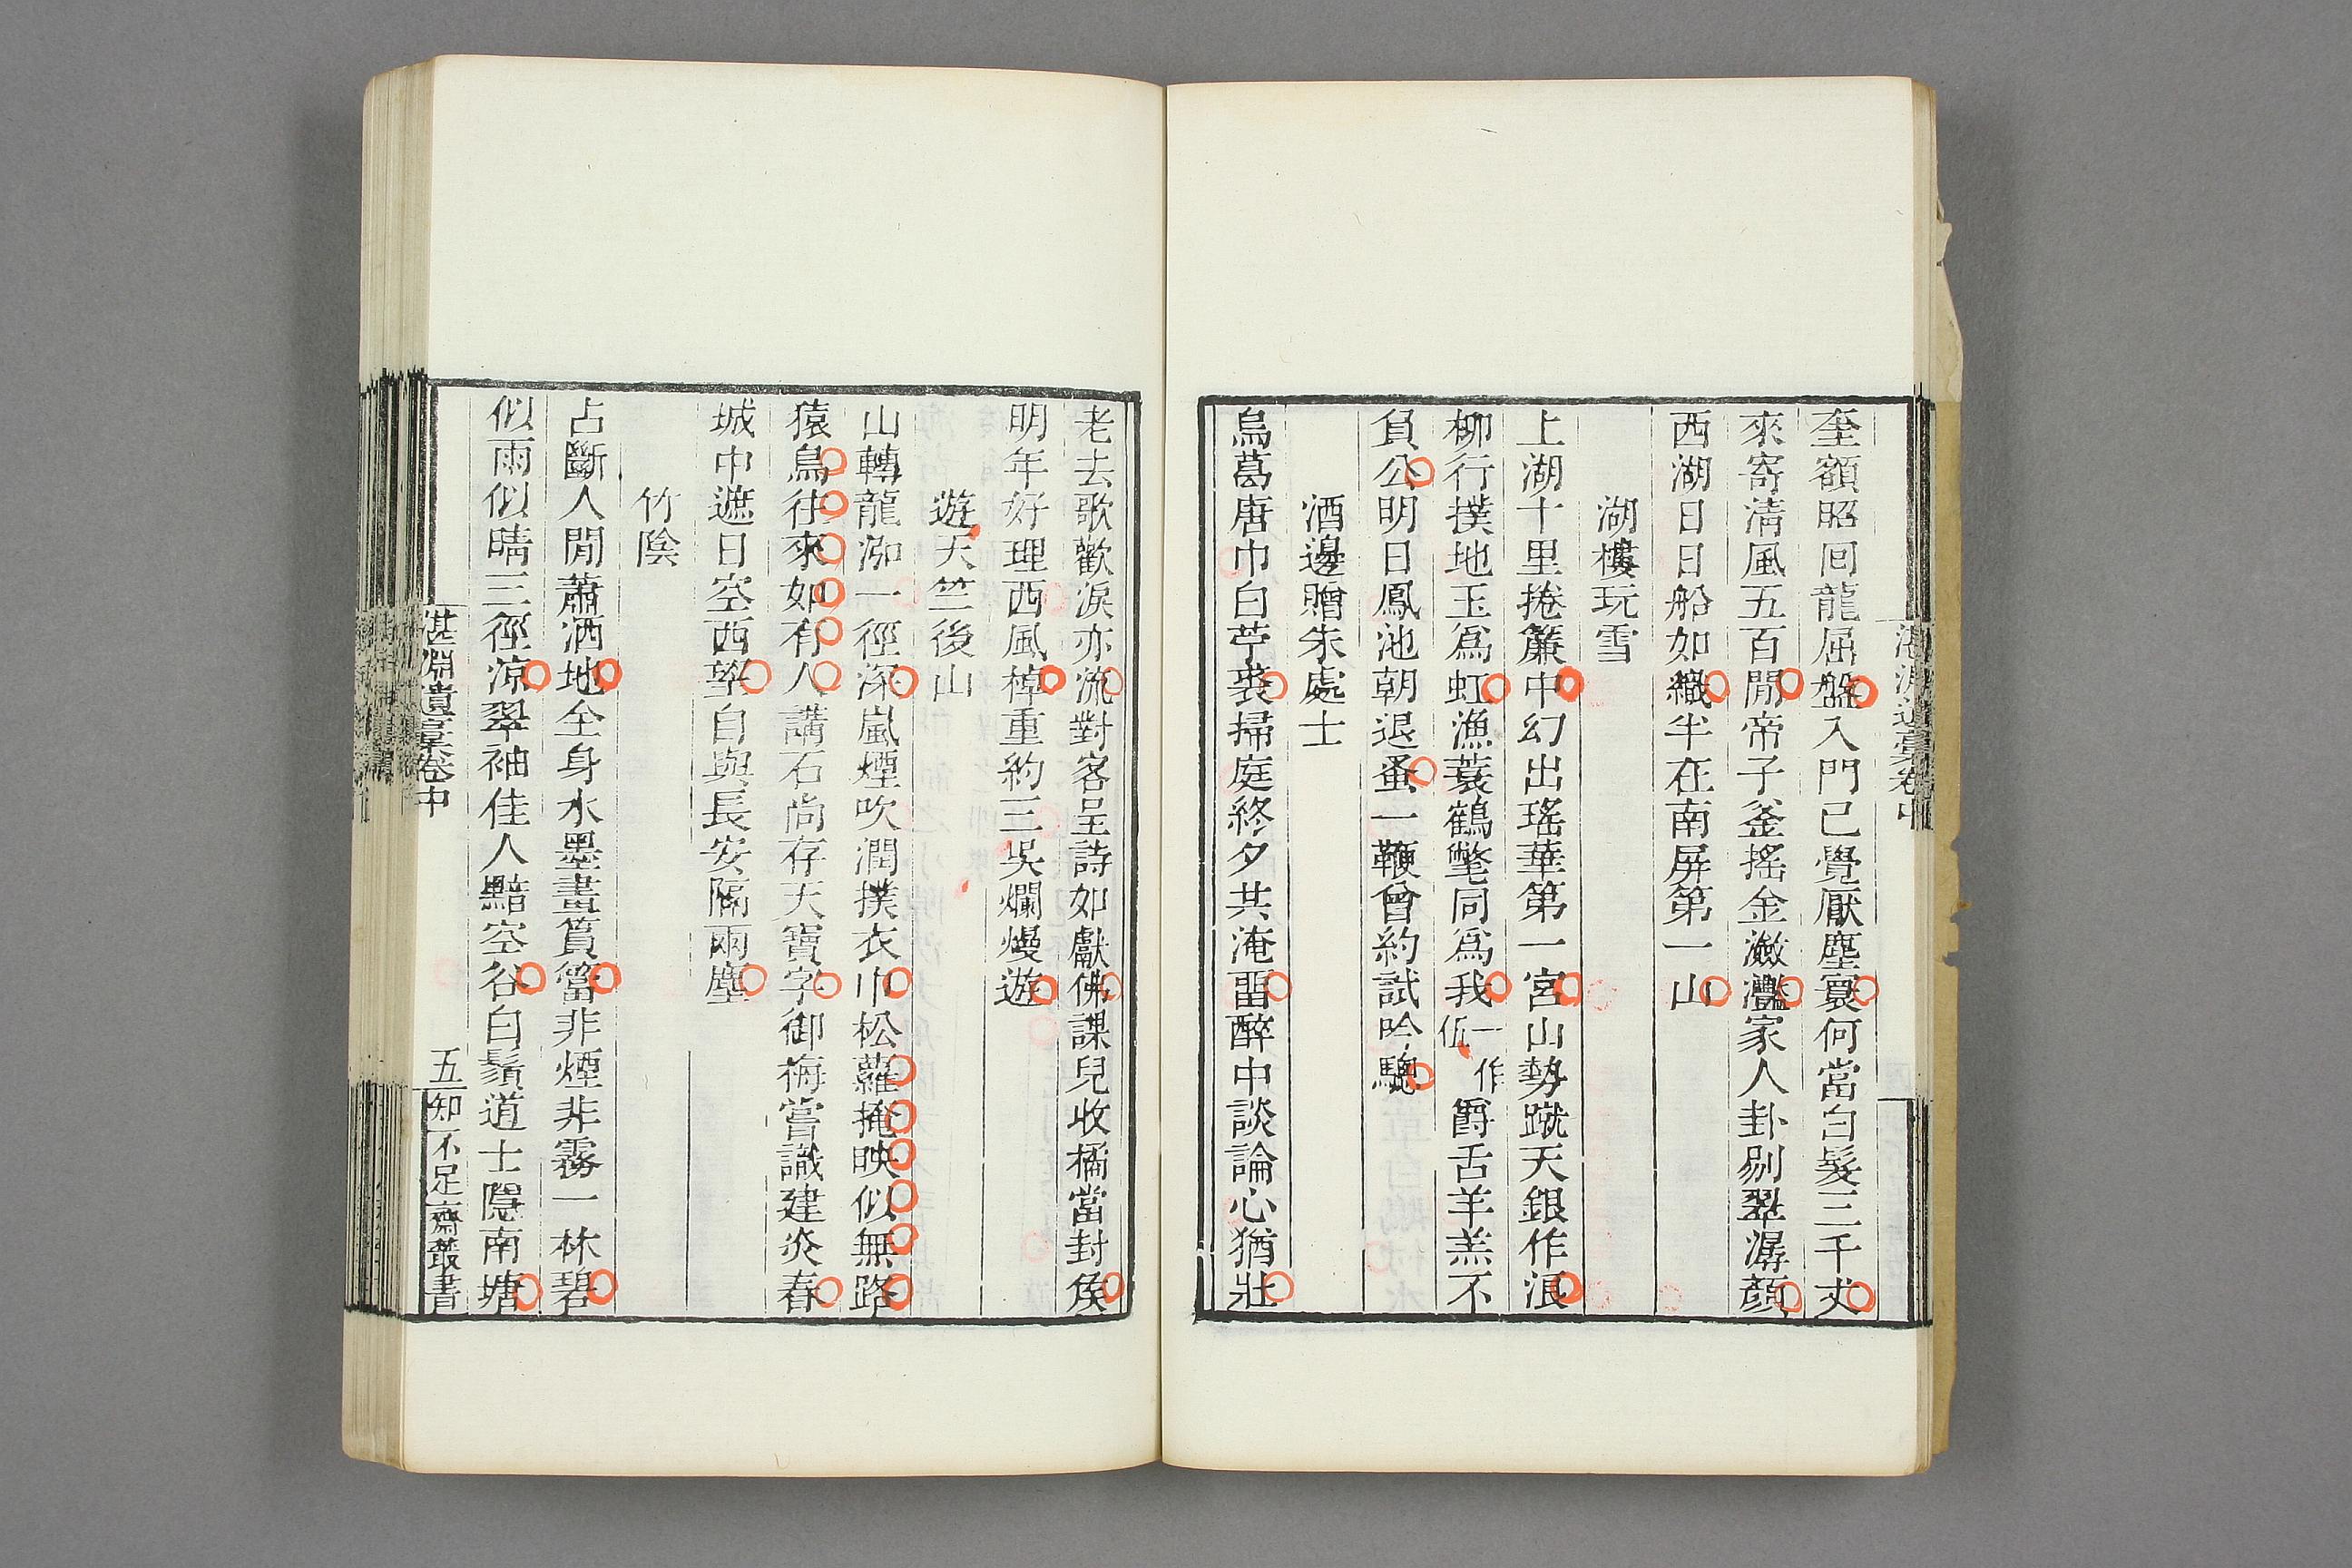 奎額昭回龍屈盤入門已覺厭塵寰何當白髮三千丈
來寄淸風五百閒帝子釜搖金瀲灩家人卦剔翠潺顏
西湖日日船如織半在南屛第一山
湖樓玩雪
上湖十里捲簾中幻出瑤華第一宮山勢蹴天銀作浪
柳行撲地玉爲虹漁蓑鶴氅同爲我一作伍爵舌羊羔不
負公明日鳳池朝退蚤一鞭曾約試吟驄
酒邊贈朱處士
烏葛唐巾白苧裘掃庭終夕共淹畱醉中談論心猶壯
老去歌歡淚亦流對客呈詩如獻佛課兒收橘當封矦
明年好理西風棹重約三吳爛熳遊
遊天竺後山
山轉龍泓一徑深嵐煙吹潤撲衣巾松蘿掩映似無路
猿鳥往來如有人講石尙存天寶字御梅嘗識建炎春
城中遮日空西望自與長安隔兩塵
竹陰
占斷人閒蕭洒地全身水墨畫篔簹非煙非霧一林碧
似雨似晴三徑凉翠袖佳人黯空谷白鬚道士隱南塘
湛淵遺稾卷中
五
知不足齋叢書